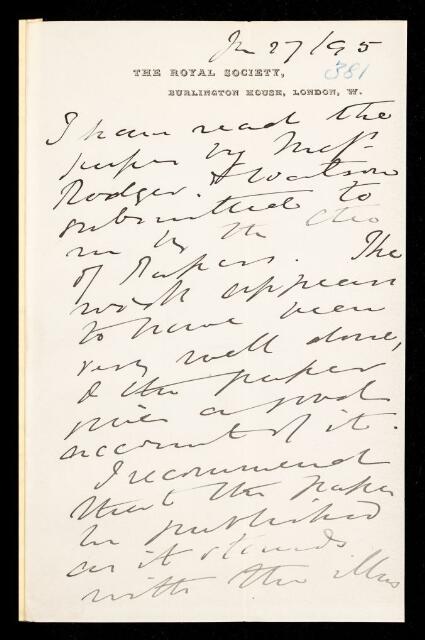 Jn 27/95
381
THE ROYAL SOCIETY,
BURLINGTON HOUSE, LONDON, W.
I have read the
paper by Messrs
Rodger & Watson
submitted to
me by the Cttee
of Papers. The
work appears
to have been
very well done,
& the paper
gives a good
account of it.
I recommend
that the paper
be published
as it stands
with the illus